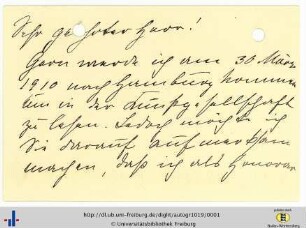 Sehr geehrter Herr!
Gern werde ich am 30 März
1910 nach Hamburg kommen
um in der Kunstgesellschaft
zu lesen. Jedoch möchte ich
Sie darauf aufmerksam
machen, daß ich als Honorar
http://dl.ub.uni-freiburg.de/diglit/autogr1019/0001
© Universitätsbibliothek Freiburg